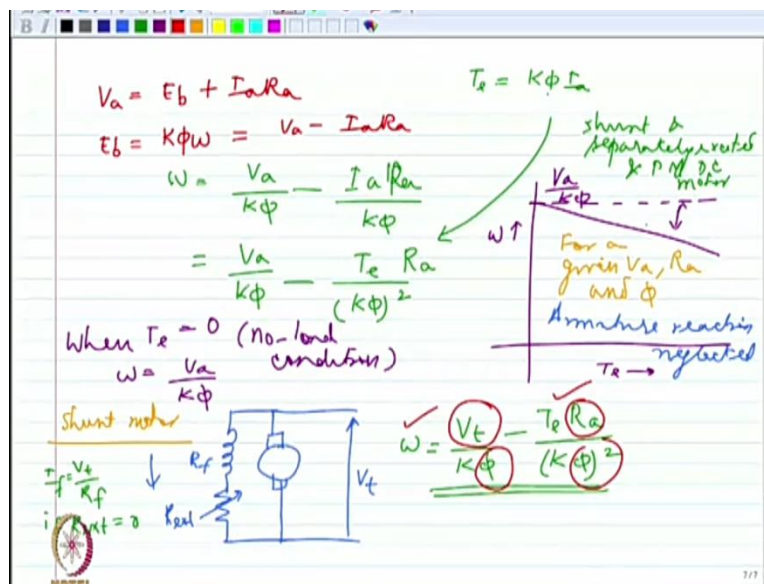 B I
Va = Eb + IaRa
Te = KΦ Ia
Eb = KΦω = Va - IaRa
ω = Va/KΦ - IaRa/KΦ
= Va/KΦ - Te Ra/(KΦ)²
When Te = 0 (no-load condition)
ω = Va/KΦ
shunt & separately excited & PM DC motor
Va/KΦ
ω ↑
For a given Va, Ra and Φ
Armature reaction neglected
Te →
Shunt motor
If = Vt/Rf
Rext = 0
Rf
Rext
Vt
ω = Vt/KΦ - Te Ra/(KΦ)²
7/7